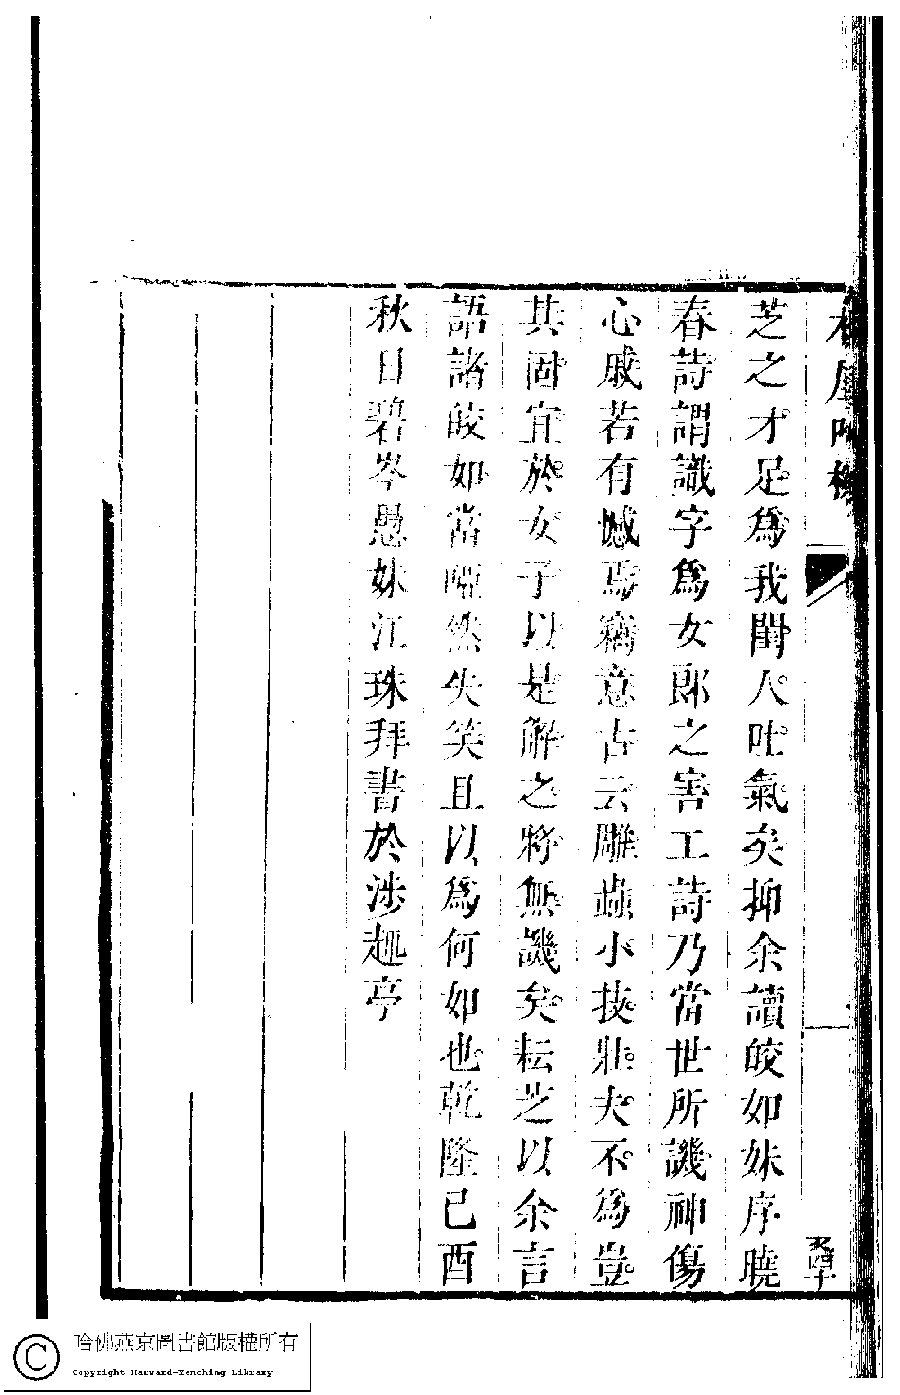 芝之才足為我閨人吐氣矣抑余讀皎如妹序曉
春詩謂識字為女郎之害工詩乃當世所譏神傷
心戚若有憾焉竊意古云雕蟲小技壯夫不為豈
其固宜於女子以是解之將無譏矣耘芝以余言
語諸皎如當啞然失笑且以為何如也乾隆己酉
秋日碧岑愚妹江珠拜書於涉趣亭
哈佛燕京圖書館版權所有
Copyright Harvard-Yenching Library